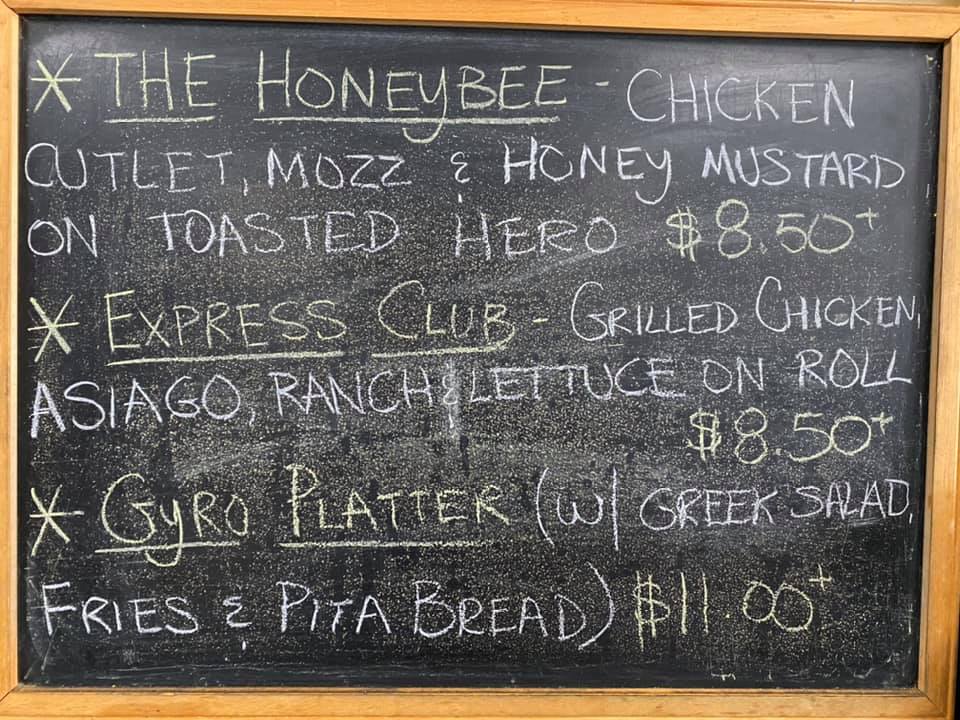 * THE HONEYBEE - CHICKEN
CUTLET, MOZZ & HONEY MUSTARD
ON TOASTED HERO $8.50+
* EXPRESS CLUB - GRILLED CHICKEN,
ASIAGO, RANCH & LETTUCE ON ROLL
$8.50+
* GYRO PLATTER (W/ GREEK SALAD,
FRIES & PITA BREAD) $11.00+